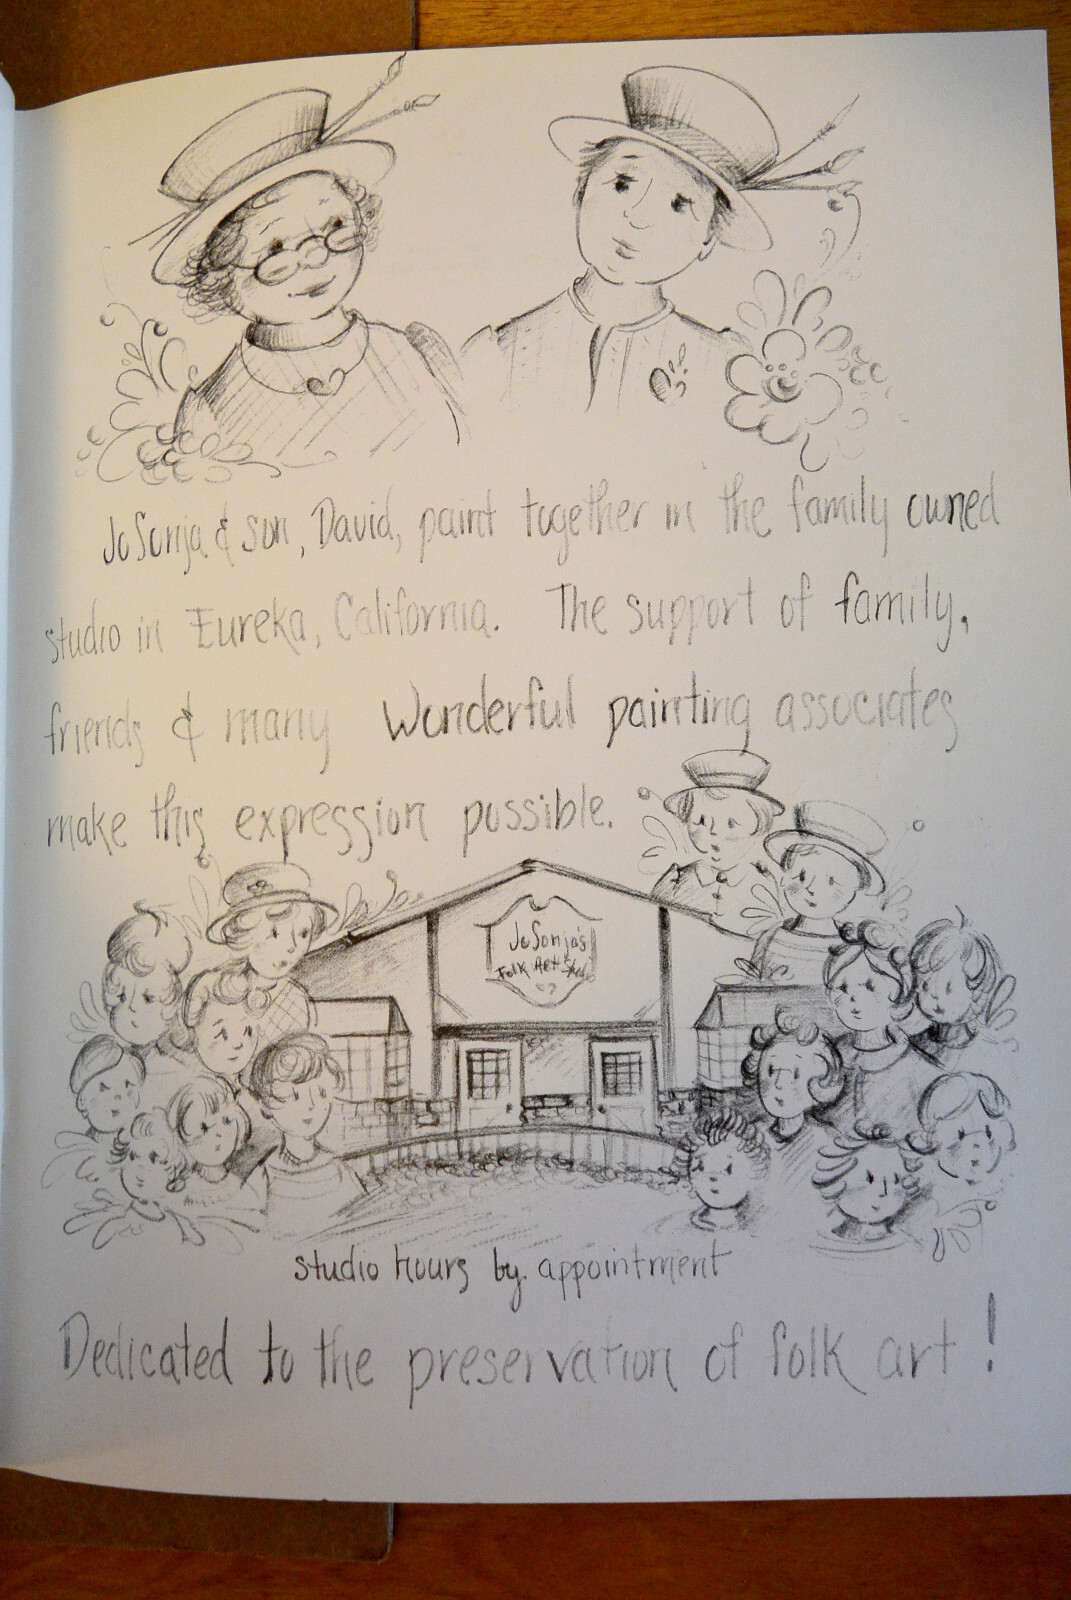 JoSonja & son, David, paint together in the family owned
studio in Eureka, California. The support of family,
friends & many Wonderful painting associates
make this expression possible.
JoSonja's
Folk Art
studio hours by appointment
Dedicated to the preservation of folk art!